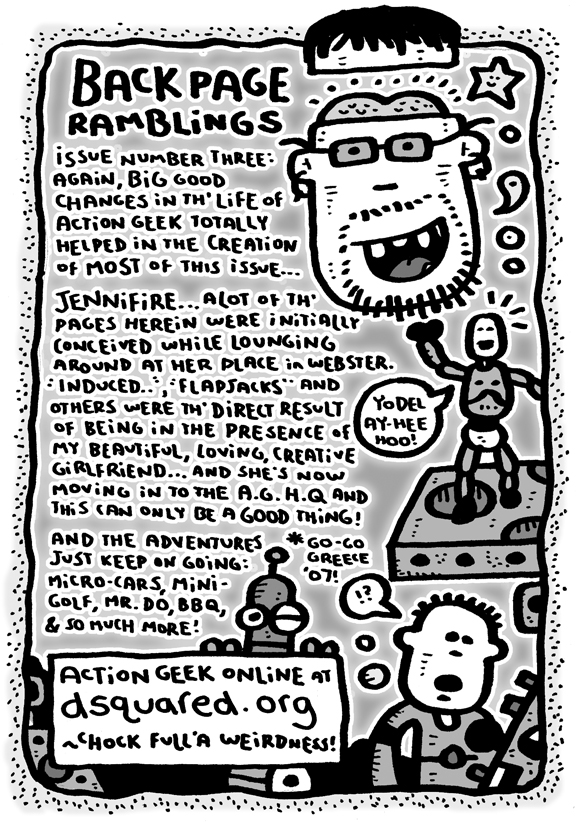 BACK PAGE
RAMBLINGS
ISSUE NUMBER THREE:
AGAIN, BIG GOOD
CHANGES IN TH' LIFE OF
ACTION GEEK TOTALLY
HELPED IN THE CREATION
OF MOST OF THIS ISSUE...
JENNIFIRE... ALOT OF TH'
PAGES HEREIN WERE INITIALLY
CONCEIVED WHILE LOUNGING
AROUND AT HER PLACE IN WEBSTER.
"INDUCED..", "FLAPJACKS" AND
OTHERS WERE TH' DIRECT RESULT
OF BEING IN THE PRESENCE OF
MY BEAUTIFUL, LOVING, CREATIVE
GIRLFRIEND... AND SHE'S NOW
MOVING IN TO THE A.G.H.Q AND
THIS CAN ONLY BE A GOOD THING!
YODEL
AY-HEE
HOO!
AND THE ADVENTURES
JUST KEEP ON GOING:
MICRO-CARS, MINI-
GOLF, MR. DO, BBQ,
& SO MUCH MORE!
* GO-GO
GREECE
'07!
!?
ACTION GEEK ONLINE AT
dsquared.org
~CHOCK FULL'A WEIRDNESS!